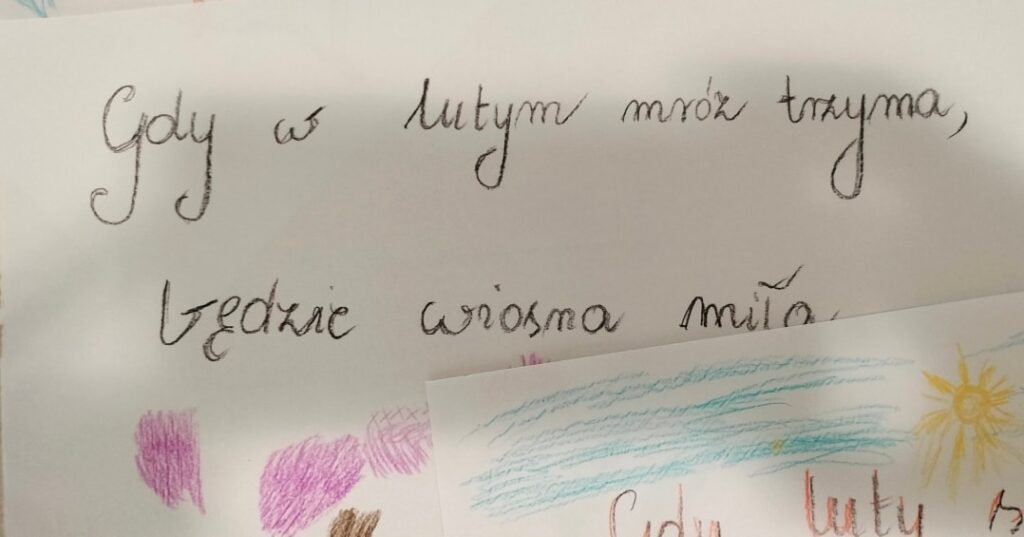 Gdy w lutym mróz trzyma,
będzie wiosna miła
Gdy luty